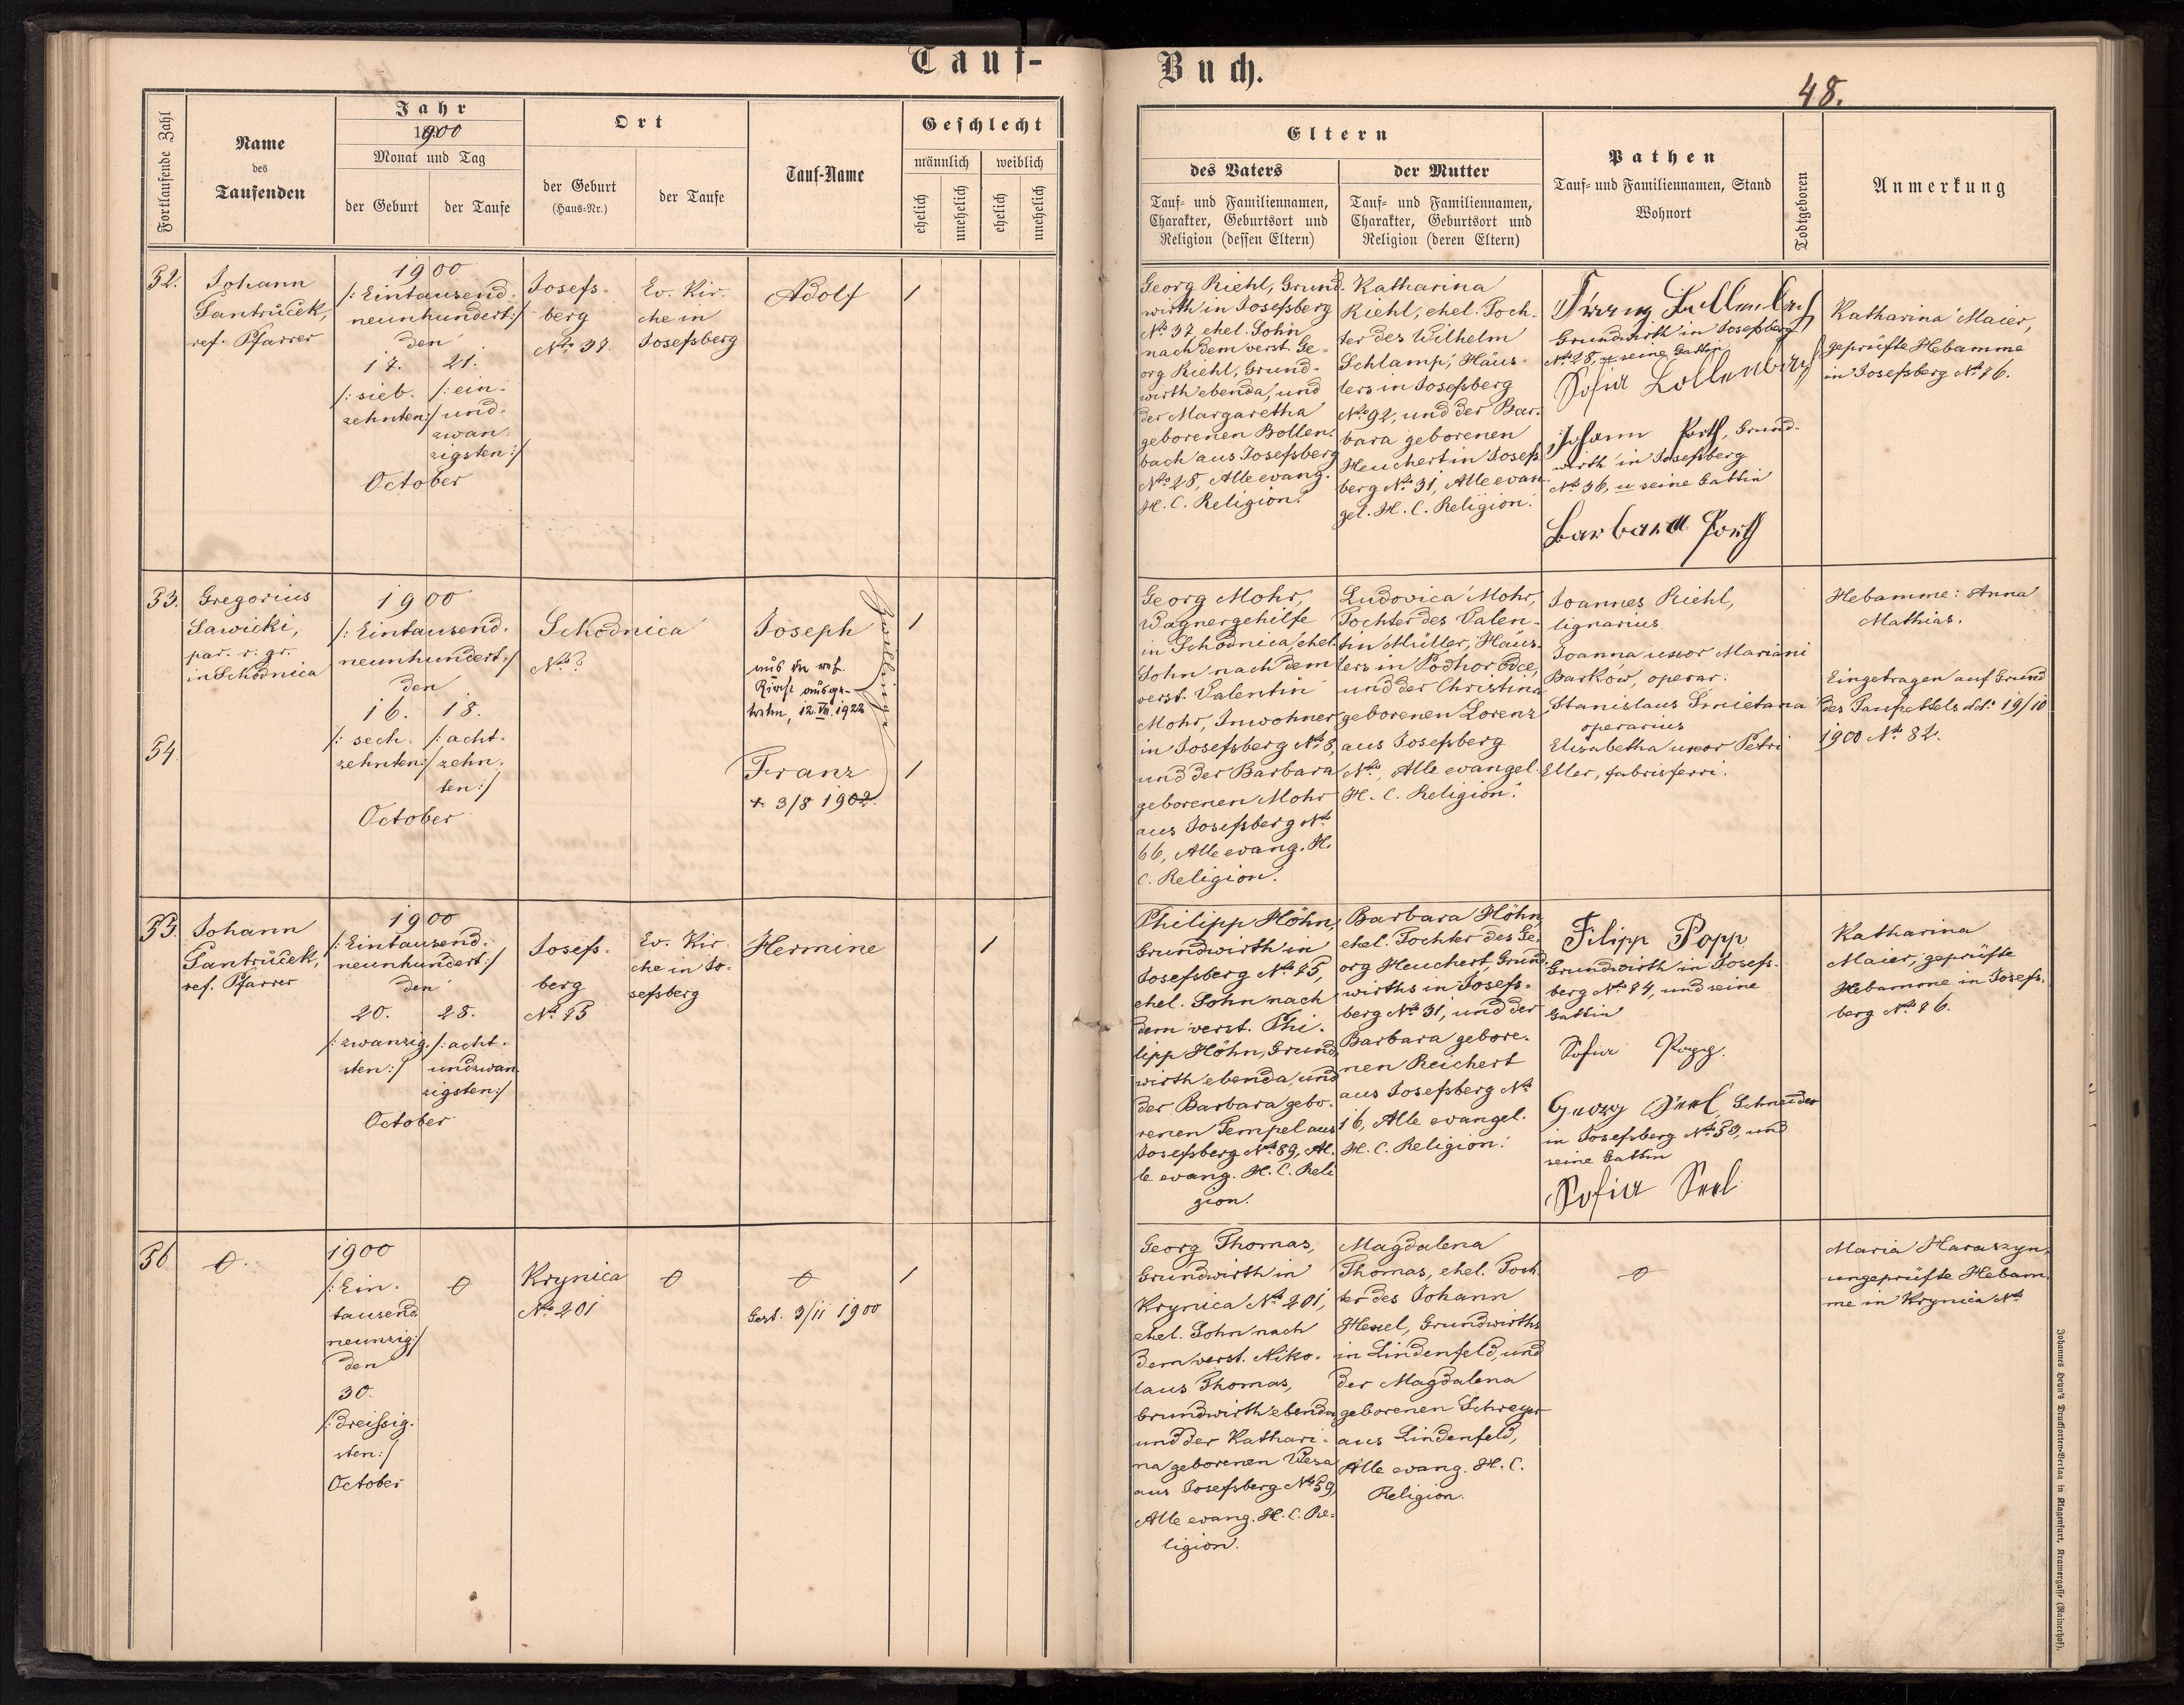 Tauf-
Buch.
48.
Fortlaufende Zahl
Name
des
Taufenden
Jahr
1900
Monat und Tag
der Geburt
der Taufe
Ort
der Geburt
(Haus-Nr.)
der Taufe
Tauf-Name
Geschlecht
männlich
weiblich
ehelich
unehelich
ehelich
unehelich
Eltern
des Vaters
Tauf- und Familiennamen,
Charakter, Geburtsort und
Religion (dessen Eltern)
der Mutter
Tauf- und Familiennamen,
Charakter, Geburtsort und
Religion (deren Eltern)
Pathen
Tauf- und Familiennamen, Stand
Wohnort
Todtgeboren
Anmerkung
52.
Johann
Jantrůček,
ref. Pfarrer
1900
/: Eintausend-
neunhundert:/
den
17.
/: sieb-
zehnten:/
21.
/: ein-
und-
zwan-
zigsten:/
October
Josefs-
berg
No. 37.
Ev. Kir-
che in
Josefsberg
Adolf
1
Georg Riehl, Grund-
wirth in Josefsberg
No. 37 ehel. Sohn
nach dem verst. Ge-
org Riehl, Grund-
wirth ebenda, und
der Margaretha
geborenen Bollen-
bach aus Josefsberg
No. 28, Alle evang.
H. C. Religion.
Katharina
Riehl, ehel. Toch-
ter des Wilhelm
Schlamp, Häus-
lers in Josefsberg
No. 92, und der Bar-
bara geborenen
Heuchert in Josefs-
berg No. 31, Alle evan-
gel. H. C. Religion.
Grundwirth in Josefsberg
No. 28, u seine Gattin
Sofia
Johann Porth, Grund-
wirth in Josefsberg
No. 36, u seine Gattin
Barbara Porth
Katharina Maier,
geprüfte Hebamme
in Josefsberg No. 86.
53.
54.
Gregorius
Sawicki,
par. r. gr.
in Schodnica
1900
/: Eintausend-
neunhundert:/
den
16.
/: sech-
zehnten:/
18.
/: acht-
zehn-
ten:/
October
Schodnica
No.?
Joseph
aus der ref.
Kirche ausge-
treten, 12.VII.1922
Zwillinge
Franz
† 3/8 1902.
1
1
Georg Mohr,
Wagnergehilfe
in Schodnica, ehel.
Sohn nach dem
verst. Valentin
Mohr, Inwohner
in Josefsberg No. 8,
und der Barbara
geborenen Mohr
aus Josefsberg No.
66, Alle evang. H.
C. Religion.
Ludovica Mohr,
Tochter des Valen-
tin Müller, Häus-
lers in Podhorodce,
und der Christina
geborenen Lorenz
aus Josefsberg
No., Alle evangel.
H. C. Religion.
Joannes Riehl,
lignarius.
Joanna uxor Mariani
Barków, operar.
Stanislaus Smietana
operarius
Elisabetha uxor Petri
Eller, fabris ferri.
Hebamme: Anna
Mathias.
Eingetragen auf Grund
des Taufzettels dd: 19/10
1900 No. 82.
55.
Johann
Jantrůček,
ref. Pfarrer
1900
/: Eintausend-
neunhundert:/
den
20.
/: zwanzig-
sten:/
28.
/: acht-
undzwan-
zigsten:/
October
Josefs-
berg
No. 85
Ev. Kir-
che in Jo-
sefsberg
Hermine
1
Philipp Höhn,
Grundwirth in
Josefsberg No. 85,
ehel. Sohn nach
dem verst. Phi-
lipp Höhn, Grund-
wirth ebenda, und
der Barbara gebo-
renen Tempel aus
Josefsberg No. 89, Al-
le evang. H. C. Reli-
gion.
Barbara Höhn,
ehel. Tochter des Ge-
org Heuchert, Grund-
wirths in Josefs-
berg No. 31, und der
Barbara gebore-
nen Reichert
aus Josefsberg No.
16, Alle evangel.
H. C. Religion.
Filipp Popp
Grundwirth in Josefs-
berg No. 84, und seine
Gattin
Sofia Popp.
Georg Seel, Schneider
in Josefsberg No. 53, und
seine Gattin
Sofia Seel
Katharina
Maier, geprüfte
Hebamme in Josefs-
berg No. 86.
56
1900
/: Ein-
tausend
neunzig:/
den
30.
/: dreissig-
sten:/
October
Krynica
No. 201
Gest. 3/11 1900
1
Georg Thomas,
Grundwirth in
Krynica No. 201,
ehel. Sohn nach
dem verst. Niko-
laus Thomas,
Grundwirth ebenda,
und der Kathari-
na geborenen Wesa
aus Josefsberg No. 59,
Alle evang. H. C. Re-
ligion.
Magdalena
Thomas, ehel. Toch-
ter des Johann
Hexel, Grundwirths
in Lindenfeld, und
der Magdalena
geborenen Schreyer
aus Lindenfeld,
Alle evang. H. C.
Religion.
Maria Haraszyn,
ungeprüfte Hebam-
me in Krynica No.
Johannes Heyn's Drucksorten-Verlag in Klagenfurt, Kramergasse (Rainerhof).